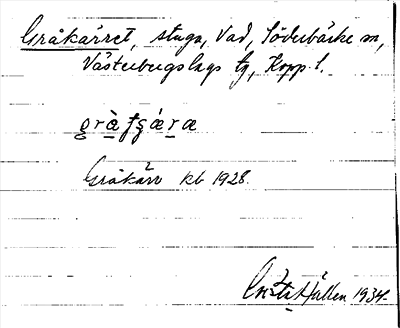 Gråkärret, stuga, Vad, Söderbärke sn,
Västerbergslags tg, Kopp. l.
grà̱fʂá̱ṟæ
Gråkärr kb 1928.
Greta Hallén 1934.